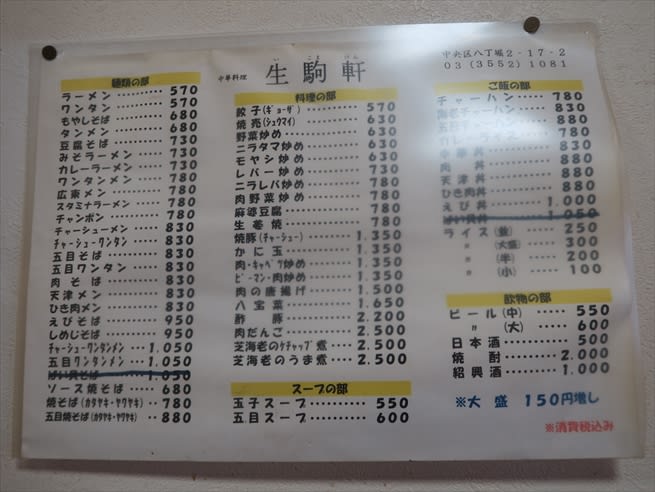 中華料理 生駒軒
いこまけん
中央区八丁堀2-17-2
03(3552)1081
麺類の部
ラーメン 570
ワンタン 570
もやしそば 680
タンメン 680
豆腐そば 730
みそラーメン 730
カレーラーメン 730
ワンタンメン 780
広東メン 780
スタミナラーメン 780
チャンポン 780
チャーシューメン 830
チャーシューワンタン 830
五目そば 830
五目ワンタン 830
肉そば 830
天津メン 830
ひき肉メン 830
えびそば 950
しめじそば 950
チャーシューワンタンメン 1.050
五目ワンタンメン 1.050
そば 1.050
ソース焼そば 680
焼そば(カタヤキ・ヤワヤキ) 780
五目焼そば(カタヤキ・ヤワヤキ) 880
料理の部
餃子(ギョーザ) 570
焼売(シュウマイ) 630
野菜炒め 630
ニラタマ炒め 630
モヤシ炒め 630
レバー炒め 730
ニラレバ炒め 780
肉野菜炒め 780
麻婆豆腐 780
生姜焼 780
焼豚(チャーシュー) 1.350
かに玉 1.350
肉・キャベツ炒め 1.350
ピーマン・肉炒め 1.350
肉の唐揚げ 1.500
八宝菜 1.650
酢豚 2.200
肉だんご 2.500
芝海老のケチャップ煮 2.500
芝海老のうま煮 2.500
スープの部
玉子スープ 550
五目スープ 600
ご飯の部
チャーハン 780
海老チャーハン 830
五目チャーハン
カレーライス
中華丼 830
肉丼 880
天津丼 880
ひき肉丼 880
えび丼 1.000
丼 1.050
ライス(並) 250
〃(大盛) 300
〃(半) 200
〃(小) 100
飲物の部
ビール(中) 550
〃(大) 600
日本酒 500
焼酎 2.000
紹興酒 1.000
※大盛 150円増し
※消費税込み